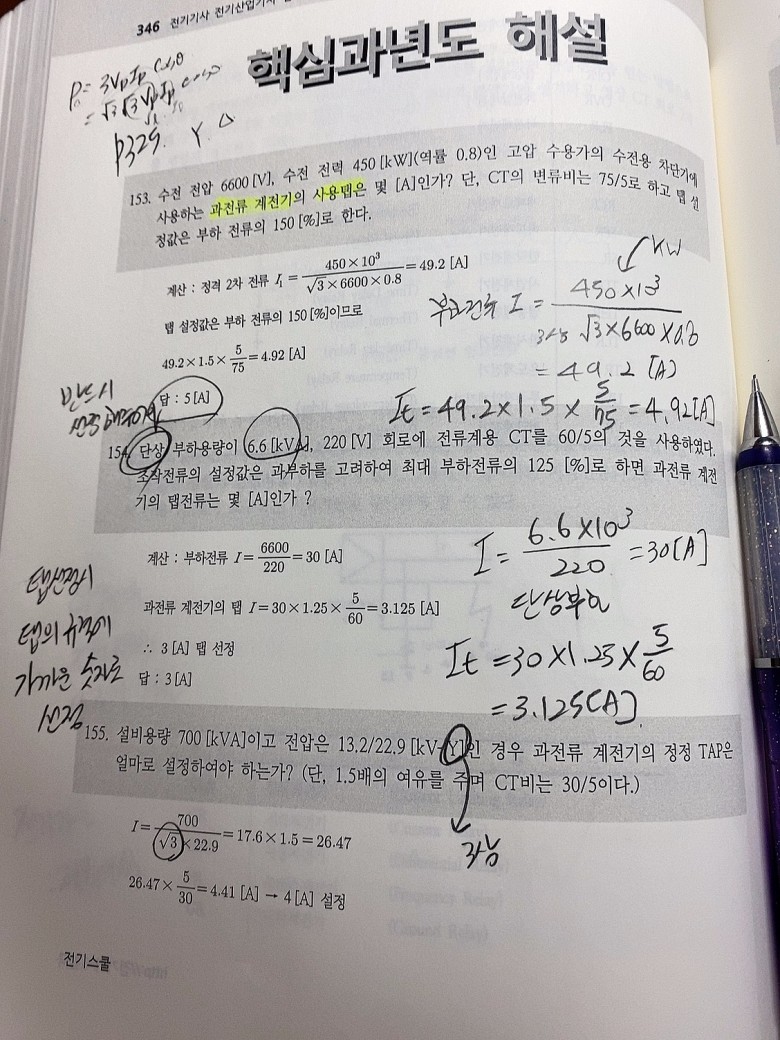 346 전기기사 전기산업기사
핵심과년도 해설
P = 3VpIp cosθ
P325. Y. △
153. 수전 전압 6600 [V], 수전 전력 450 [kW](역률 0.8)인 고압 수용가의 수전용 차단기에
사용하는 과전류 계전기의 사용탭은 몇 [A]인가? 단, CT의 변류비는 75/5로 하고 탭 설
정값은 부하 전류의 150 [%]로 한다.
계산 : 정격 2차 전류 I₁ = 450×10³ / √3×6600×0.8 = 49.2 [A]
탭 설정값은 부하 전류의 150 [%]이므로
49.2×1.5×5/75 = 4.92 [A]
답 : 5 [A]
KW
부하전류 I = 450×10³ / √3×6600×0.8
3상
= 49.2 [A]
It = 49.2×1.5×5/75 = 4.92[A]
반드시
154. 단상 부하용량이 6.6 [kVA], 220 [V] 회로에 전류계용 CT를 60/5의 것을 사용하였다.
조작전류의 설정값은 과부하를 고려하여 최대 부하전류의 125 [%]로 하면 과전류 계전
기의 탭전류는 몇 [A]인가 ?
계산 : 부하전류 I = 6600/220 = 30 [A]
과전류 계전기의 탭 I = 30×1.25×5/60 = 3.125 [A]
∴ 3 [A] 탭 선정
답 : 3 [A]
I = 6.6×10³ / 220 = 30[A]
단상부하
It = 30×1.25×5/60
= 3.125[A]
탭선정시
탭의 규격에
가까운 숫자로
선정
155. 설비용량 700 [kVA]이고 전압은 13.2/22.9 [kV-Y]인 경우 과전류 계전기의 정정 TAP은
얼마로 설정하여야 하는가? (단, 1.5배의 여유를 주며 CT비는 30/5이다.)
I = 700 / √3×22.9 = 17.6×1.5 = 26.47
26.47×5/30 = 4.41 [A] → 4 [A] 설정
3상
전기스쿨